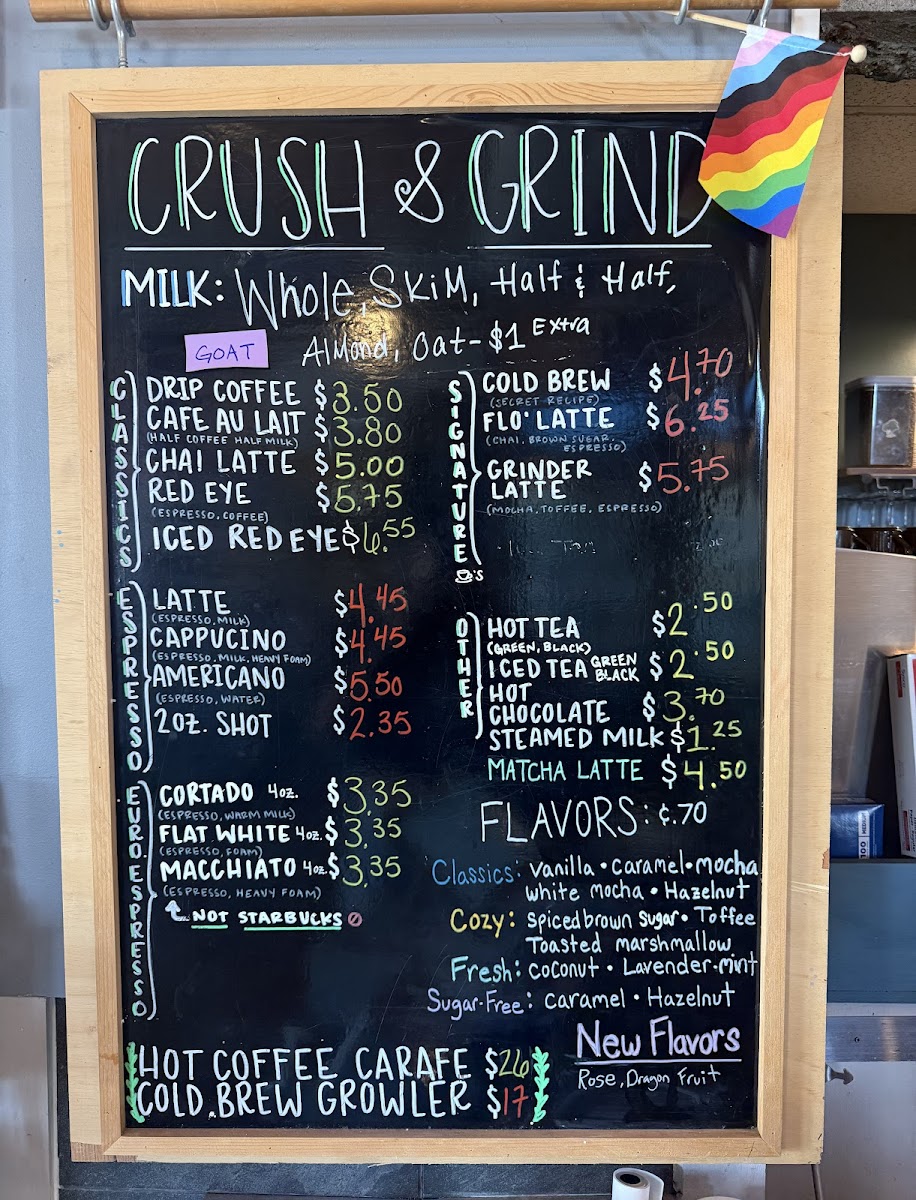 CRUSH & GRIND
MILK: Whole, Skim, Half & Half,
GOAT Almond, Oat - $1 Extra
CLASSICS
DRIP COFFEE $3.50
CAFE AU LAIT $3.80
(HALF COFFEE HALF MILK)
CHAI LATTE $5.00
RED EYE $5.75
(ESPRESSO, COFFEE)
ICED RED EYE $6.55
ESPRESSO
LATTE $4.45
(ESPRESSO, MILK)
CAPPUCINO $4.45
(ESPRESSO, MILK, HEAVY FOAM)
AMERICANO $5.50
(ESPRESSO, WATER)
2oz. SHOT $2.35
EURO. ESPRESSO
CORTADO 4oz. $3.35
(ESPRESSO, WARM MILK)
FLAT WHITE 4oz. $3.35
(ESPRESSO, FOAM)
MACCHIATO 4oz. $3.35
(ESPRESSO, HEAVY FOAM)
NOT STARBUCKS
SIGNATURE
'S
COLD BREW $4.70
(SECRET RECIPE)
FLO' LATTE $6.25
(CHAI, BROWN SUGAR,
ESPRESSO)
GRINDER
LATTE $5.75
(MOCHA, TOFFEE, ESPRESSO)
OTHER
HOT TEA $2.50
(GREEN, BLACK)
ICED TEA GREEN BLACK $2.50
HOT
CHOCOLATE $3.70
STEAMED MILK $1.25
MATCHA LATTE $4.50
FLAVORS: ¢.70
Classics: vanilla • caramel • mocha
white mocha • Hazelnut
Cozy: spiced brown sugar • Toffee
Toasted marshmallow
Fresh: coconut • Lavender • mint
Sugar-Free: caramel • Hazelnut
New Flavors
Rose, Dragon Fruit
HOT COFFEE CARAFE $26
COLD BREW GROWLER $17
100 MEDIUM